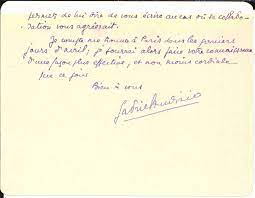 permet de lui dire de vous écrire au cas où sa collabo-
ration vous agréerait.
Je compte me trouver à Paris dans les premiers
jours d'avril; je pourrai alors faire votre connaissance
d'une façon plus effective, et non moins cordiale
que ce jour
Bien à vous
Gabriel Audisio